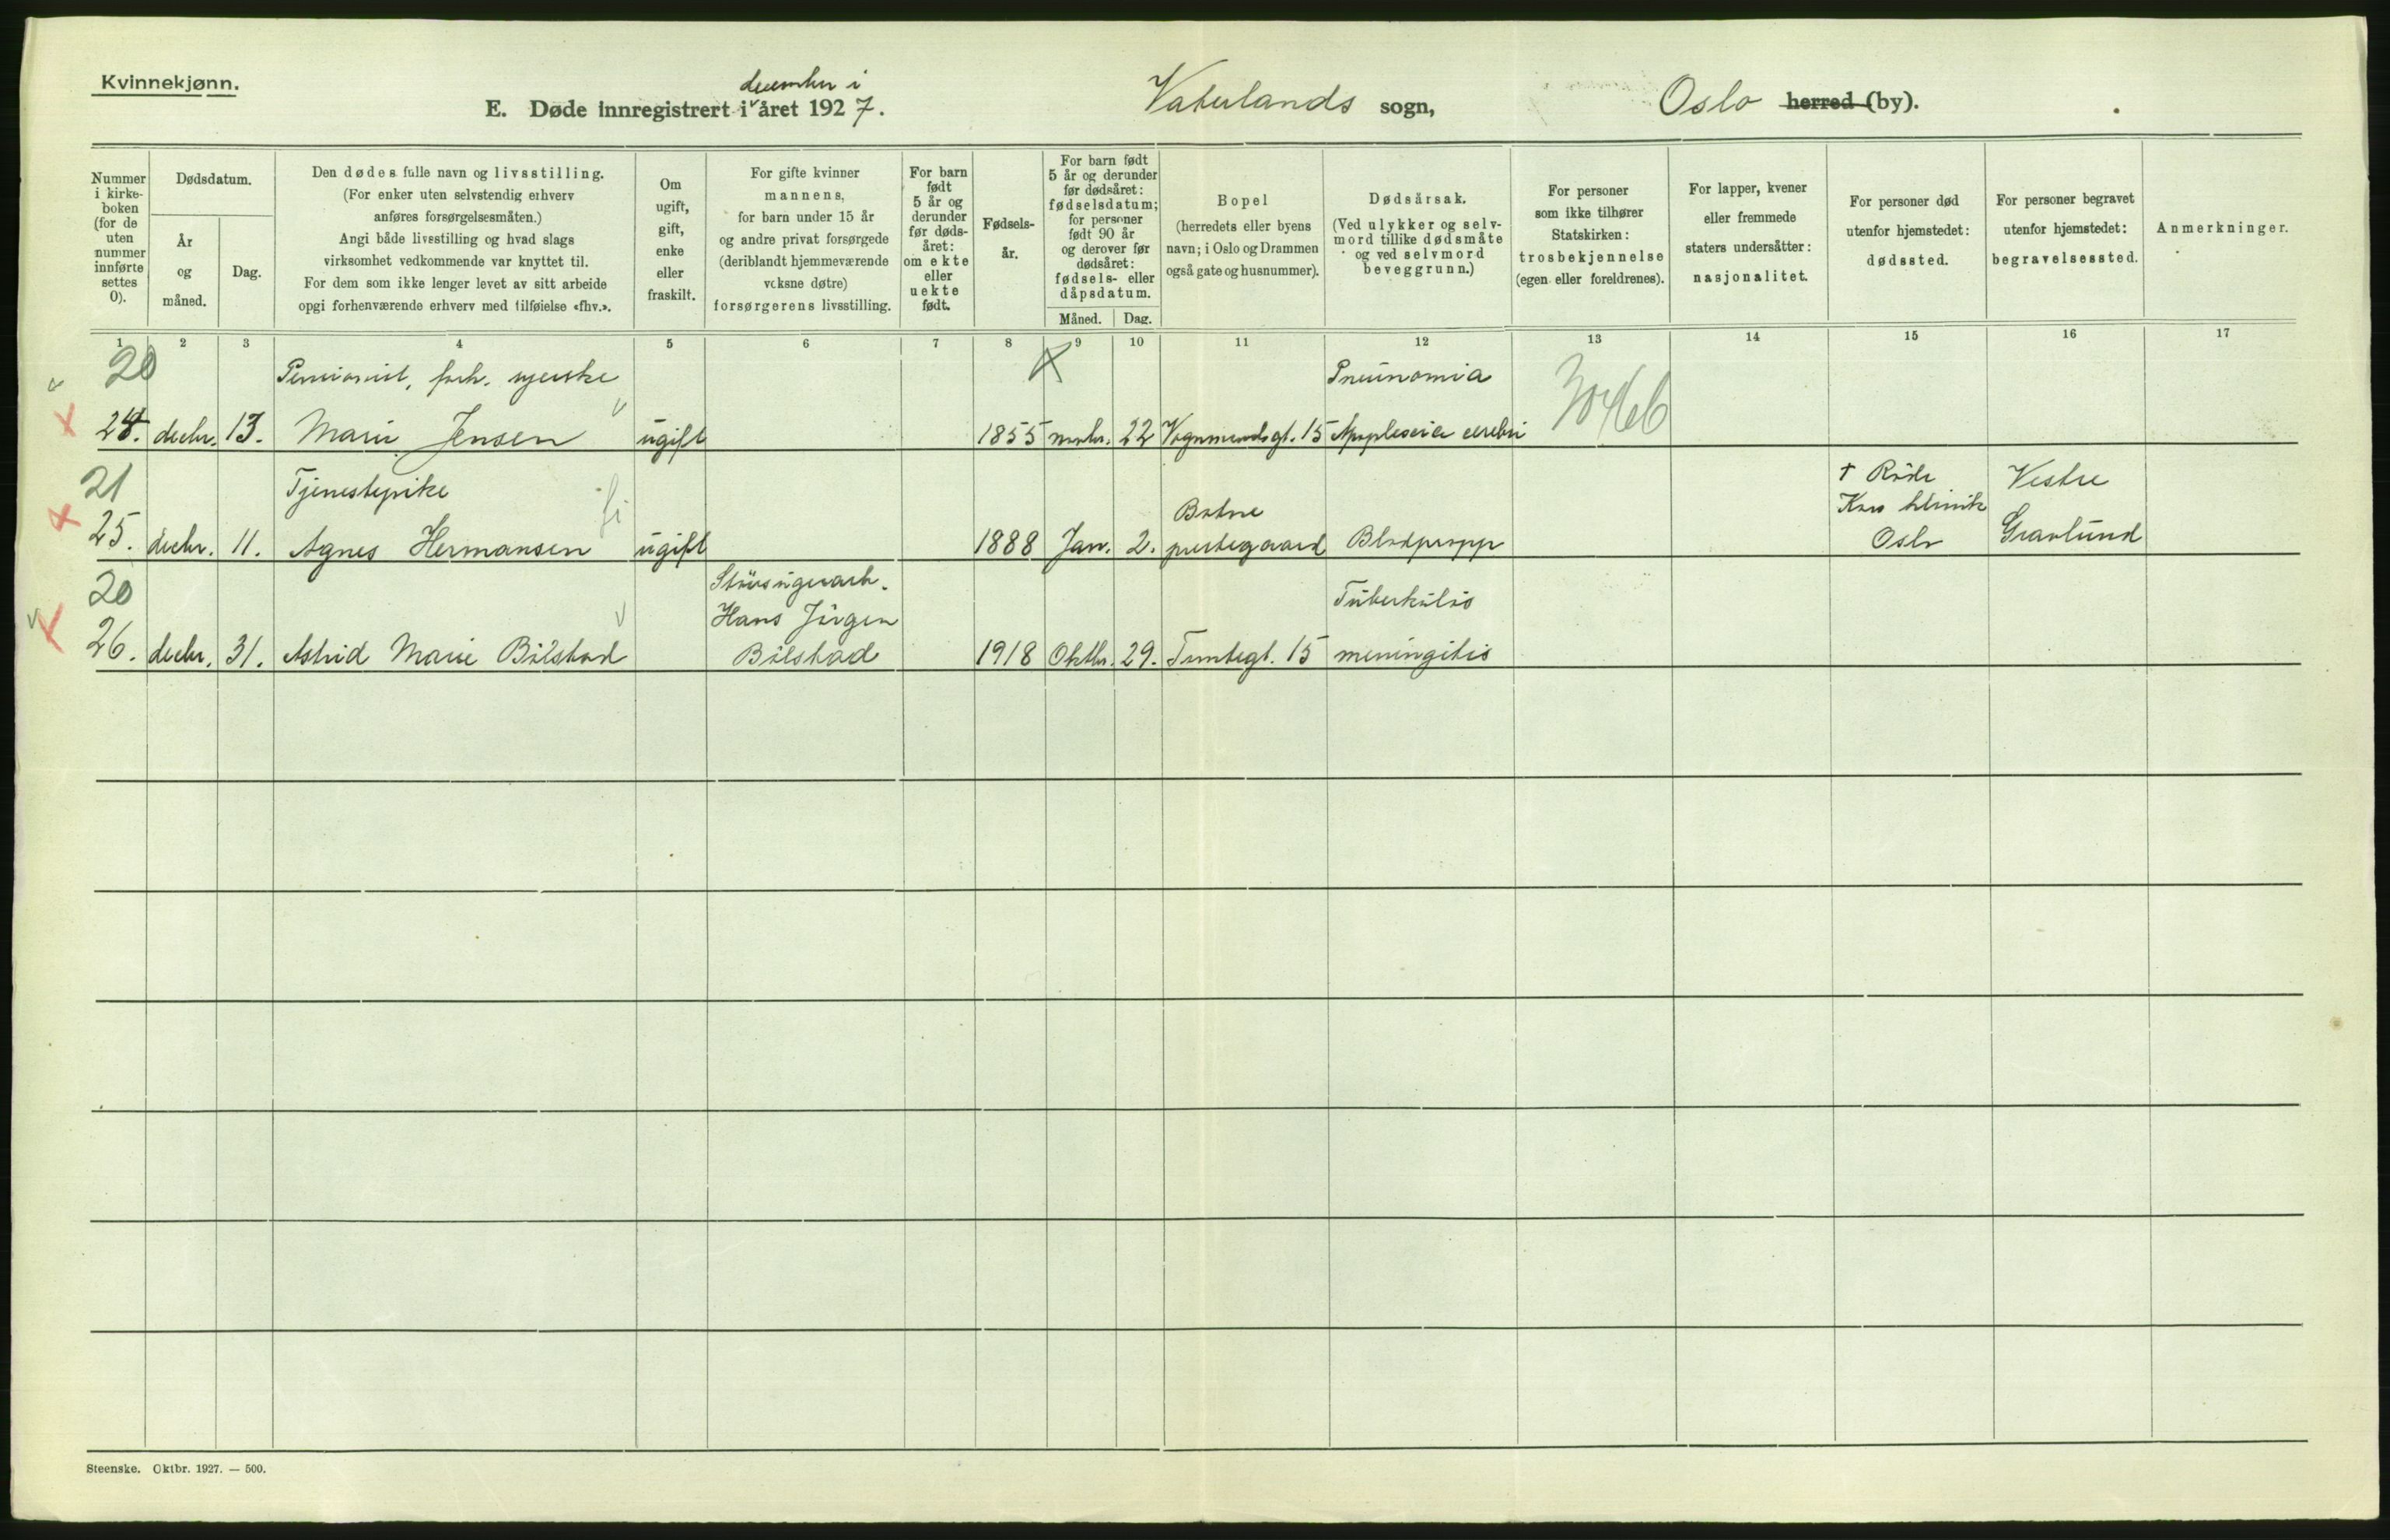 Kvinnekjønn.
december i
E. Døde innregistrert i året 1927. Vaterlands sogn, Oslo herred (by).
Nummer i kirkeboken (for de uten nummer innførte settes 0).
Dødsdatum.
År og måned.
Dag.
Den dødes fulle navn og livsstilling.
(For enker uten selvstendig erhverv
anføres forsørgelsesmåten.)
Angi både livsstilling og hvad slags
virksomhet vedkommende var knyttet til.
For dem som ikke lenger levet av sitt arbeide
opgi forhenværende erhverv med tilføielse «fhv.».
Om ugift, gift, enke eller fraskilt.
For gifte kvinner
mannens,
for barn under 15 år
og andre privat forsørgede
(deriblandt hjemmeværende
voksne døtre)
forsørgerens livsstilling.
For barn født 5 år og derunder før dødsåret: om ekte eller uekte født.
Fødselsår.
For barn født
5 år og derunder
før dødsåret:
fødselsdatum;
for personer
født 90 år
og derover før
dødsåret:
fødsels- eller
dåpsdatum.
Måned. Dag.
Bopel
(herredets eller byens
navn; i Oslo og Drammen
også gate og husnummer).
Dødsårsak.
(Ved ulykker og selv-
mord tillike dødsmåte
og ved selvmord
beveggrunn.)
For personer
som ikke tilhører
Statskirken:
trosbekjennelse
(egen eller foreldrenes).
For lapper, kvener
eller fremmede
staters undersåtter:
nasjonalitet.
For personer død
utenfor hjemstedet:
dødssted.
For personer begravet
utenfor hjemstedet:
begravelsessted.
Anmerkninger.
1 2 3 4 5 6 7 8 9 10 11 12 13 14 15 16 17
20
Pensionist, forh. syerske
Pneunomia
24. decbr. 13. Marie Jensen ugift 1855 novbr. 22 Vognmandsgt. 15 Apoplexia cerebri
21
Tjenestepike
† Røde Vestre
Botne
Kors klinik
25. decbr. 11. Agnes Hermansen ugift 1888 Jan. 2. prestegaard Blodpropp Oslo Gravlund
20
Støvsugerarb.
Hans Jørgen
Tuberkuløs
26. decbr. 31. Astrid Marie Bølstad Bølstad 1918 Oktbr. 29. Tomtegt. 15 meningitis
Steenske. Oktbr. 1927. — 500.